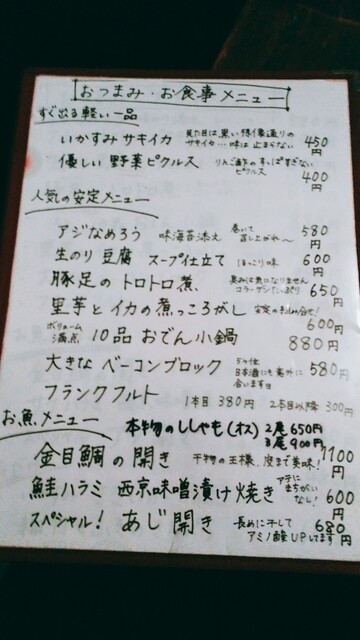 おつまみ・お食事メニュー
すぐ出る軽い一品
いかすみサキイカ 見た目は、黒い想像通りの サキイカ…味は止まらない 450円
優しい野菜ピクルス りんご酢のすっぱすぎない ピクルス 400円
人気の安定メニュー
アジなめろう 味海苔添え 巻いて 召し上がれ〜 580円
生のり豆腐 スープ仕立て ほっこり味 600円
豚足のトロトロ煮、 臭みは気になりません コラーゲンたっぷり 650円
里芋とイカの煮っころがし 安定の組み合せ! 600円
ボリューム満点 10品おでん小鍋 880円
大きなベーコンブロック 日本酒にも意外に 合います 580円
フランクフルト 1本目 380円 2本目以降 300円
お魚メニュー 本物のししゃも(オス) 2尾 650円
3尾 900円
金目鯛の開き 干物の王様、皮まで美味! 1100円
鮭ハラミ 西京味噌漬け焼き アテに まちがい なし! 600円
スペシャル! あじ開き 長めに干して アミノ酸UPしてます 680円